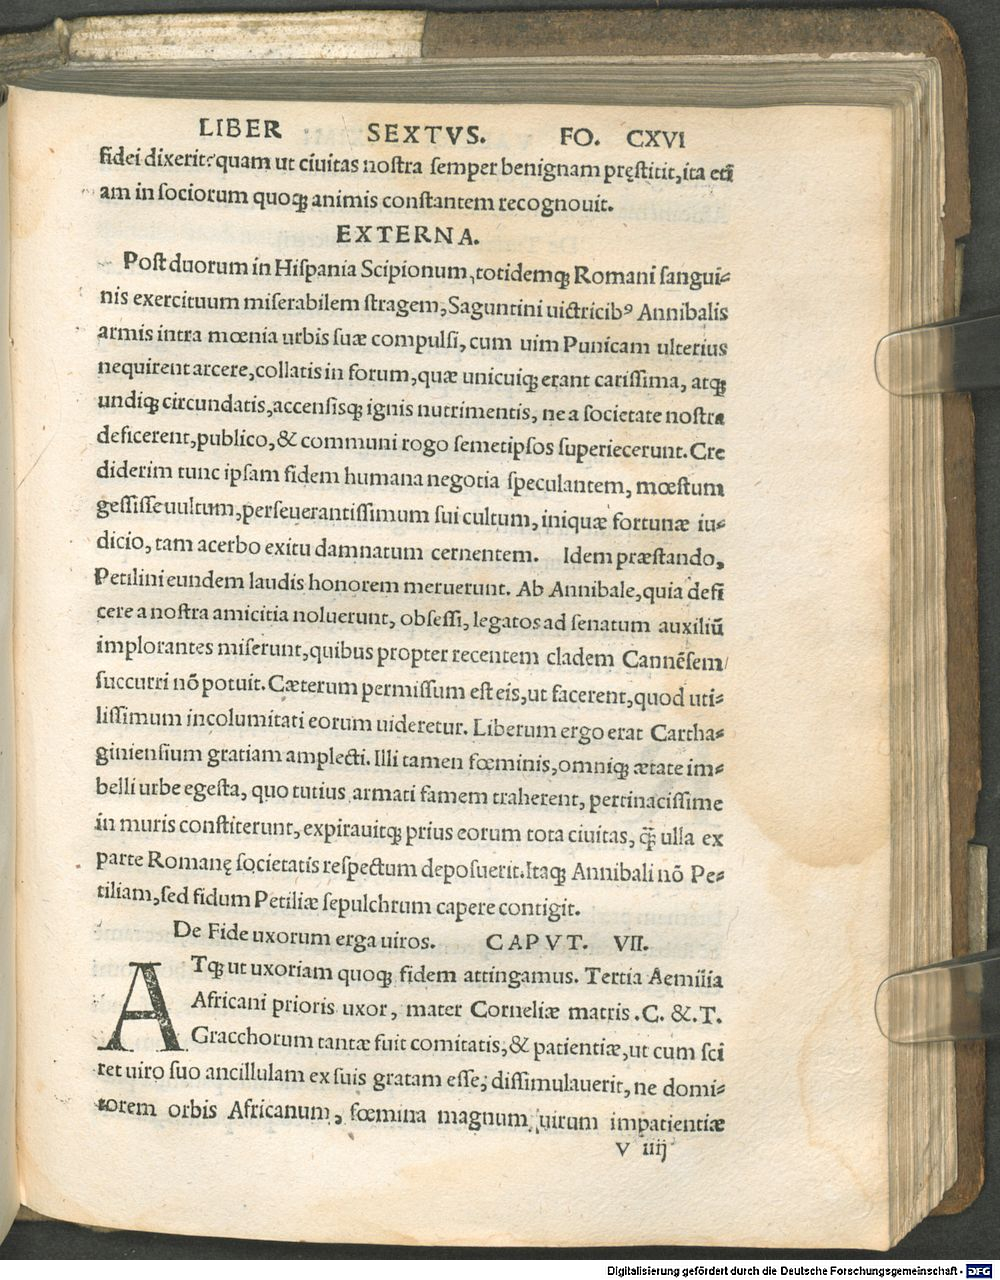 LIBER SEXTVS. FO. CXVI
fidei dixerit: quam ut ciuitas nostra semper benignam pręstitit, ita etĩ
am in sociorum quoqꝫ animis constantem recognouit.
EXTERNA.
Post duorum in Hispania Scipionum, totidemqꝫ Romani sangui-
nis exercituum miserabilem stragem, Saguntini uictricibꝰ Annibalis
armis intra mœnia urbis suæ compulsi, cum uim Punicam ulterius
nequirent arcere, collatis in forum, quæ unicuiqꝫ erant carissima, atqꝫ
undiqꝫ circundatis, accensisqꝫ ignis nutrimentis, ne a societate nostra
deficerent, publico, & communi rogo semetipsos superiecerunt. Cre
diderim tunc ipsam fidem humana negotia speculantem, mœstum
gessisse uultum, perseuerantissimum sui cultum, iniquæ fortunæ iu-
dicio, tam acerbo exitu damnatum cernentem. Idem præstando,
Petilini eundem laudis honorem meruerunt. Ab Annibale, quia defi
cere a nostra amicitia noluerunt, obsessi, legatos ad senatum auxiliũ
implorantes miserunt, quibus propter recentem cladem Cannẽsem/
succurri nõ potuit. Cæterum permissum est eis, ut facerent, quod uti-
lissimum incolumitati eorum uideretur. Liberum ergo erat Cartha-
giniensium gratiam amplecti. Illi tamen fœminis, omniqꝫ ætate im-
belli urbe egesta, quo tutius armati famem traherent, pertinacissime
in muris constiterunt, expirauitqꝫ prius eorum tota ciuitas, q̃ꝫ ulla ex
parte Romanę societatis respectum deposuerit. Itaqꝫ Annibali nõ Pe-
tiliam, sed fidum Petiliæ sepulchrum capere contigit.
De Fide uxorum erga uiros. CAPVT. VII.
ATqꝫ ut uxoriam quoqꝫ fidem attingamus. Tertia Aemilia
Africani prioris uxor, mater Corneliæ matris .C. &.T.
Gracchorum tantæ fuit comitatis, & patientiæ, ut cum sci
ret uiro suo ancillulam ex suis gratam esse, dissimulauerit, ne domi-
torem orbis Africanum, fœmina magnum uirum impatientiæ
V iiij
Digitalisierung gefördert durch die Deutsche Forschungsgemeinschaft - DFG